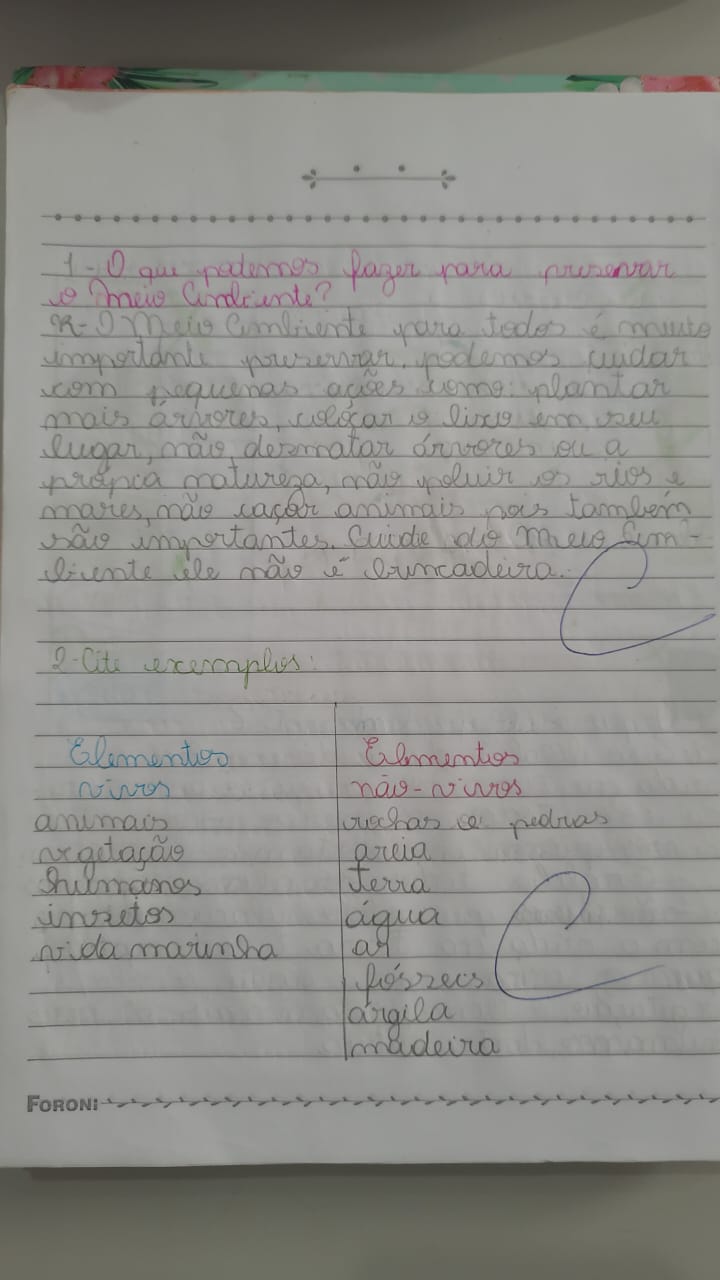 1- O que podemos fazer para preservar
o Meio Ambiente?
R- O Meio Ambiente para todos é muito
importante preservar. podemos cuidar
com pequenas ações como: plantar
mais árvores, colocar o lixo em seu
lugar, não desmatar árvores ou a
própia natureza, não poluir os rios e
mares, não caçar animais pois também
são importantes. Cuide do Meio Am-
biente ele não é brincadeira.
C
2- Cite exemplos:
Elementos vivos
animais
vegetação
humanos
insetos
vida marinha
Elementos não-vivos
rochas e pedras
areia
terra
água
ar
fósseis
árgila
madeira
C
FORONI